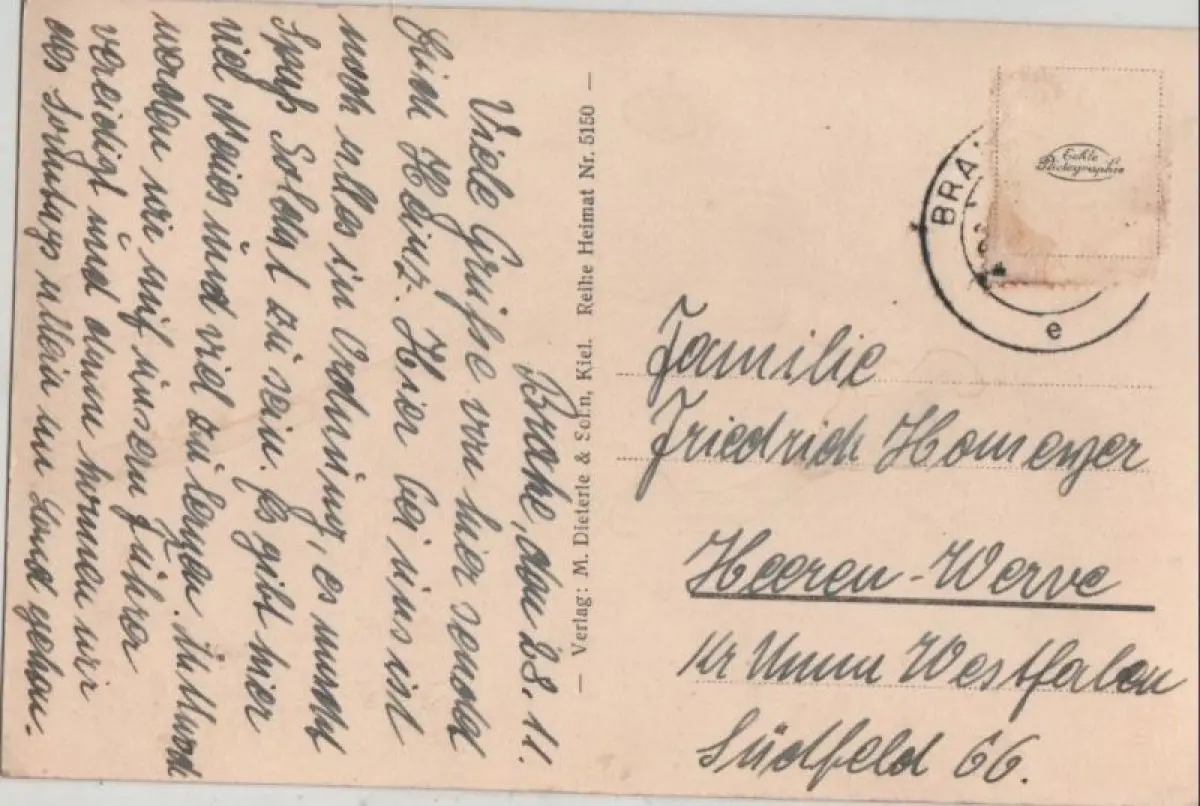 Brake, den 28. 11.
Viele Grüße von hier sendet
Euch Heinz. Hier bei uns ist
noch alles in Ordnung, es macht
Spaß Soldat zu sein. Es gibt hier
viel Neues und viel zu lernen.
werden wir auf unsern Führer
vereidigt und dann können wir
des Sonntags allein an Land gehen.
— Verlag: M. Dieterle & Sohn, Kiel. Reihe Heimat Nr. 5150 —
Echte
Photographie
BRA
e
Familie
Friedrich Homenzer
Heeren-Werve
Kr Unna Westfalen
Südfeld 66.